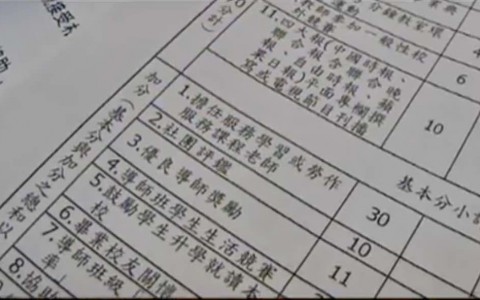 11.四大報(中國時報、
聯合報、聯合晚
報、自由時報、蘋
果日報)平面專欄撰
寫或電視節目刊播
10
6
4
加分(基本分與加分之總和以
1.擔任服務學習或勞作
服務課程老師
2.社團評鑑
3.優良導師獎勵
4.導師班學生生活競賽
5.鼓勵學生升學就讀本
校
6.畢業校友關懷
7.導師班級
8.協助
基本分小計
30
10
11